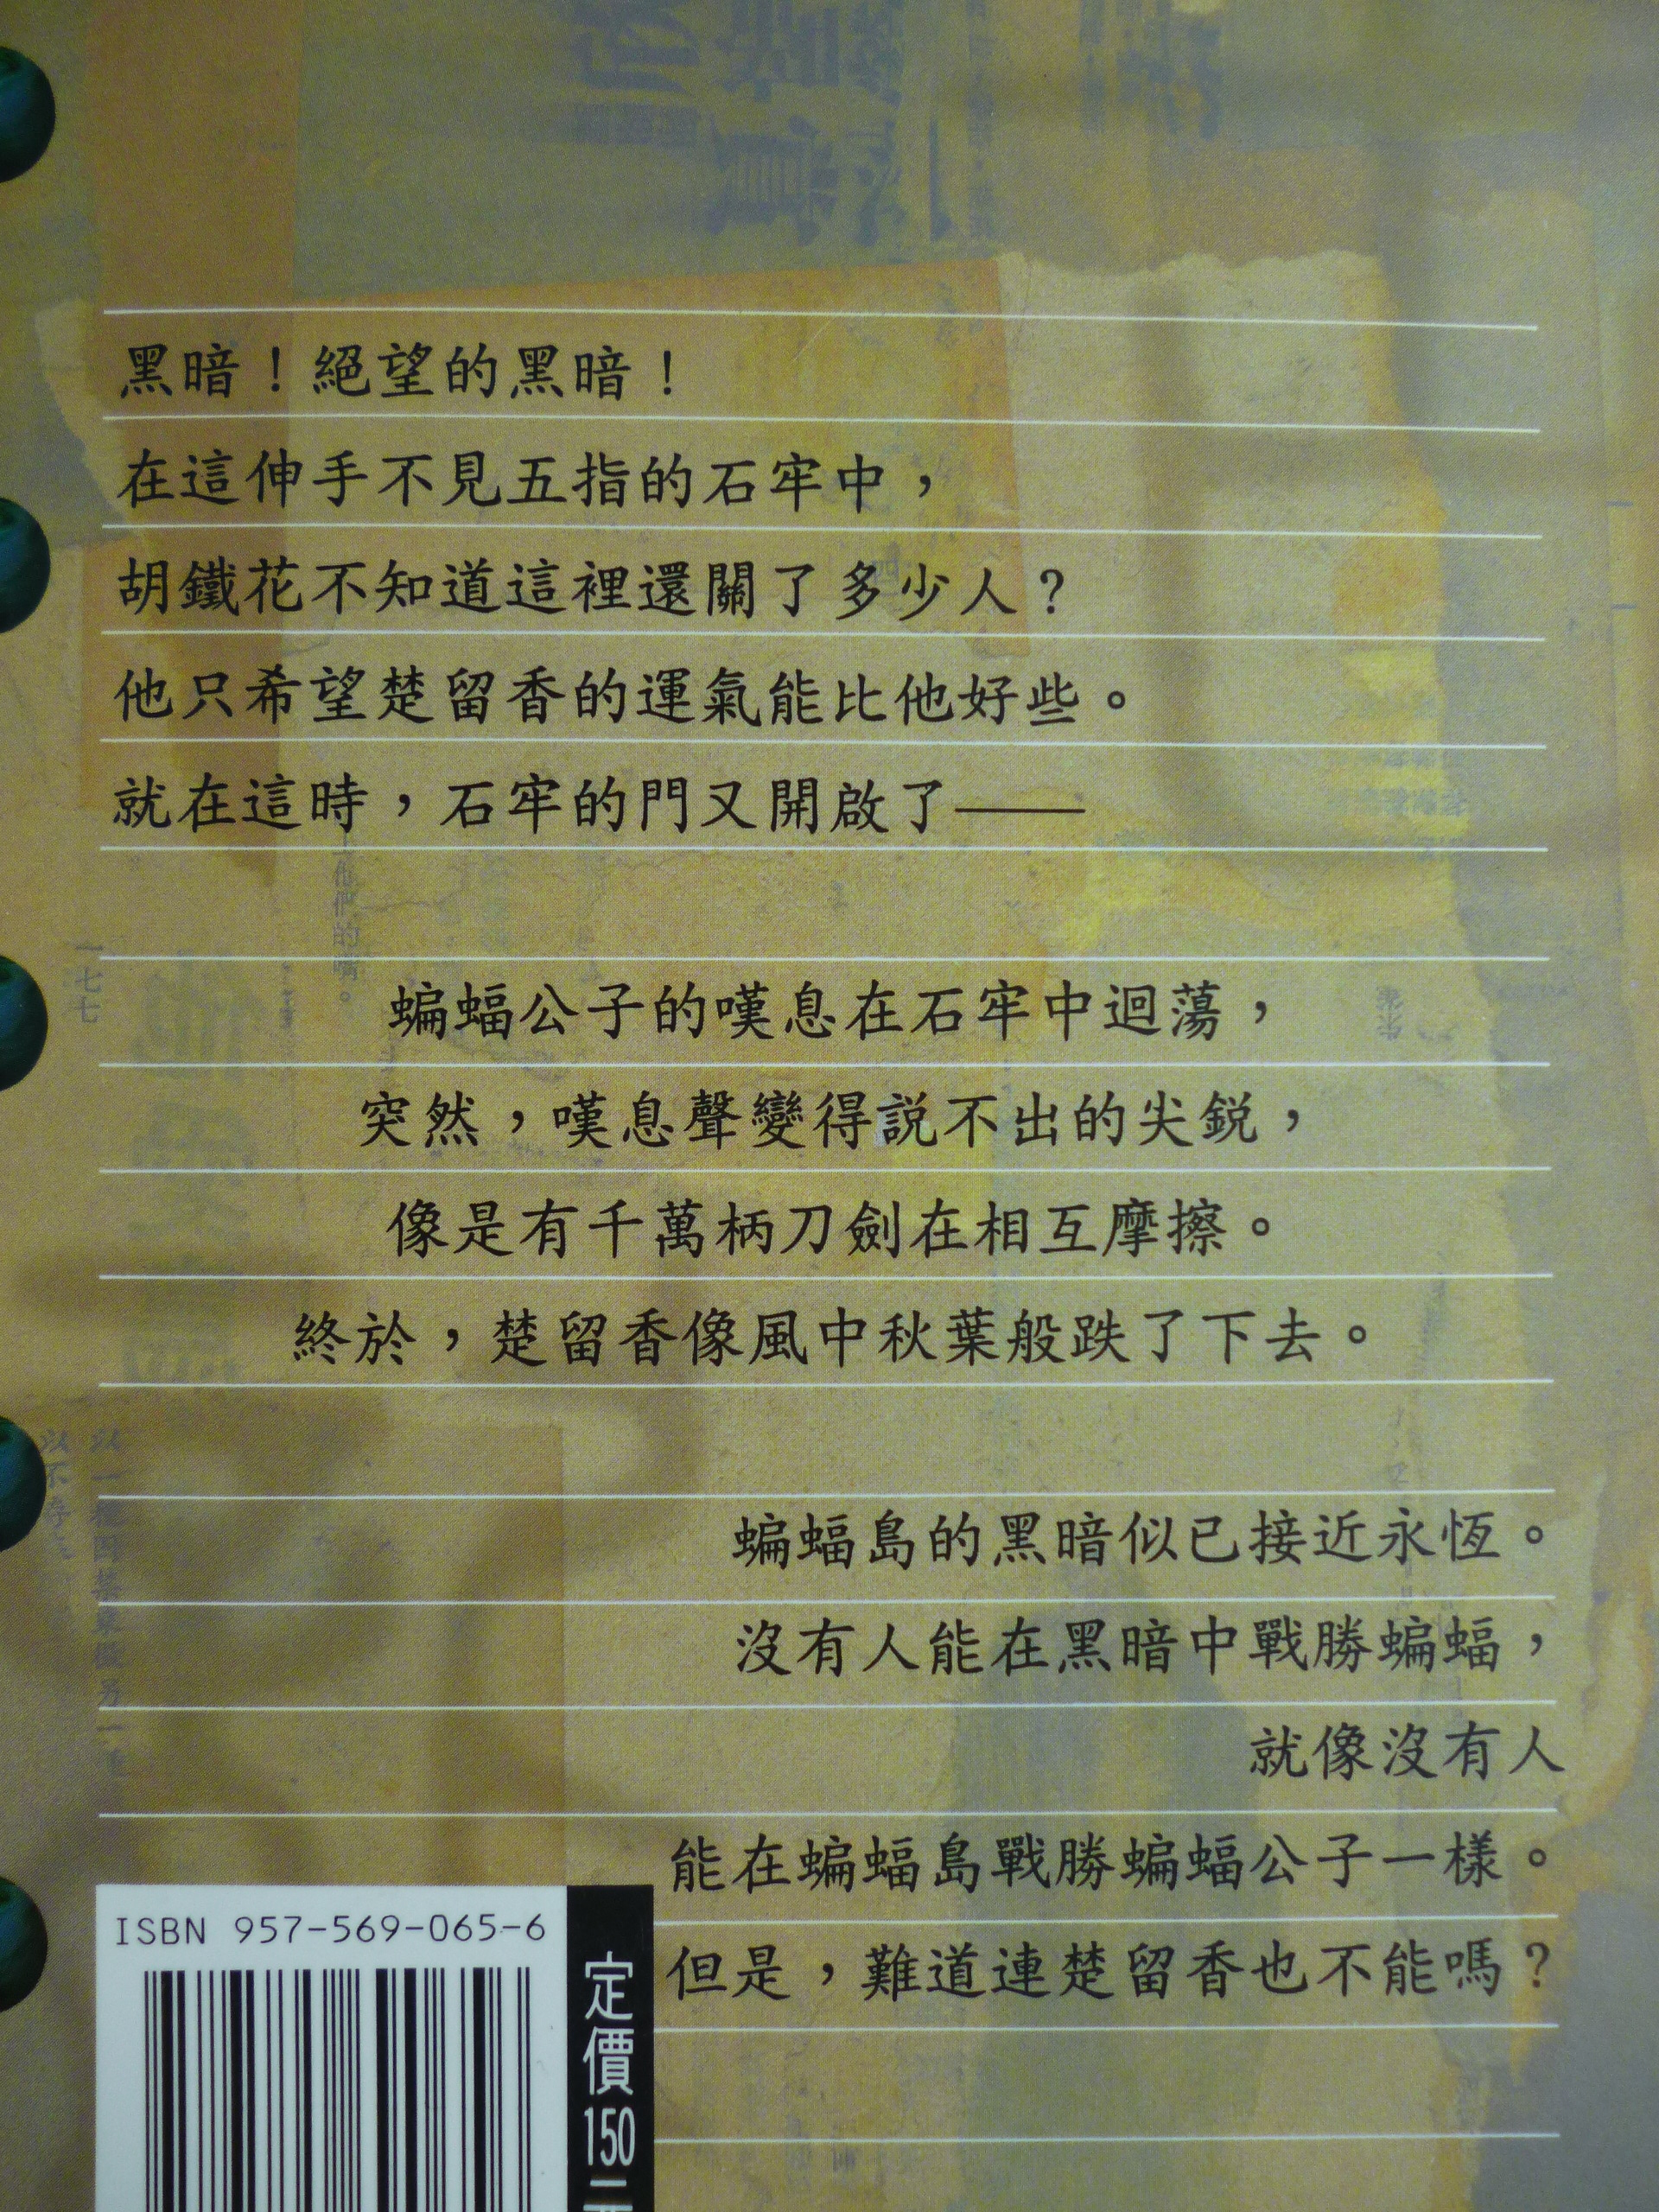 黑暗！絕望的黑暗！
在這伸手不見五指的石牢中，
胡鐵花不知道這裡還關了多少人？
他只希望楚留香的運氣能比他好些。
就在這時，石牢的門又開啟了——
蝙蝠公子的嘆息在石牢中迴蕩，
突然，嘆息聲變得說不出的尖銳，
像是有千萬柄刀劍在相互摩擦。
終於，楚留香像風中秋葉般跌了下去。
蝙蝠島的黑暗似已接近永恆。
沒有人能在黑暗中戰勝蝙蝠，
就像沒有人
能在蝙蝠島戰勝蝙蝠公子一樣。
但是，難道連楚留香也不能嗎？
ISBN 957-569-065-6
定價150元
一七七